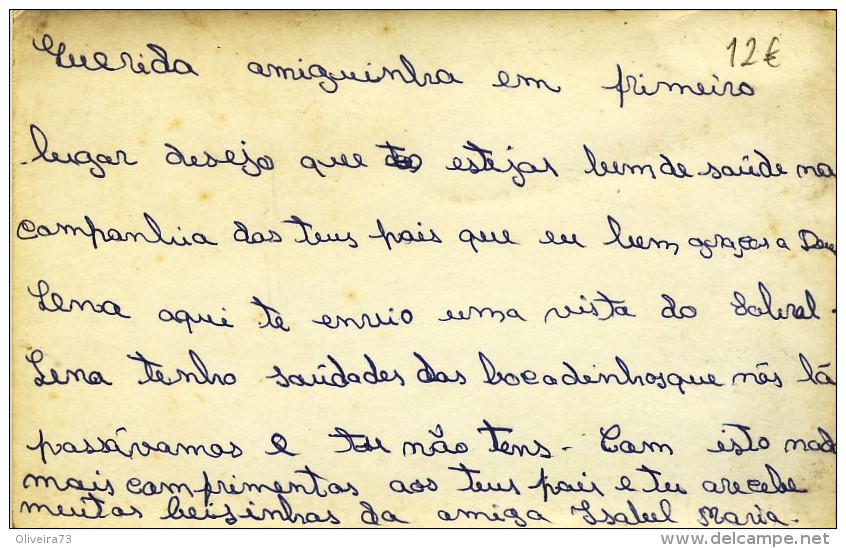 12€
Querida amiguinha em primeiro
lugar desejo que estejas bem de saúde na
companhia dos teus pais que eu bem graças a Deus
Lena aqui te envio uma vista do Sobral.
Lena tenho saúdades das bocadinhos que nós lá
passávamos e tu não tens - Com isto nad
mais comprimentos aos teus pais e tu arecebe
muitas beisinhas da amiga Isabel Maria.
Oliveira73
delcampe.net